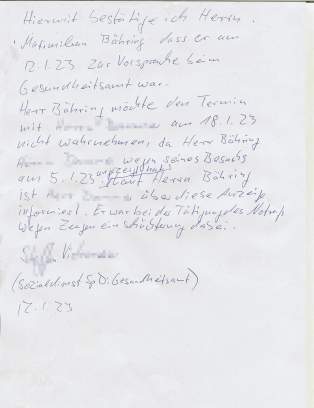 Hiermit bestätige ich Herrn
Maximilian Bähring dass er am
12.1.23 zur Vorsprache beim
Gesundheitsamt war.
Herr Bähring möchte den Termin
mit am 18.1.23
nicht wahrnehmen, da Herr Bähring
wegen seines Besuchs
am 5.1.23 angezeigt hat. Laut Herrn Bähring
ist über diese Anzeige
informiert. Er war bei der Tätigung des Notrufs
wegen Zeugeneinschüchterung dabei.
(Sozialdienst SpDi Gesundheitsamt)
12.1.23